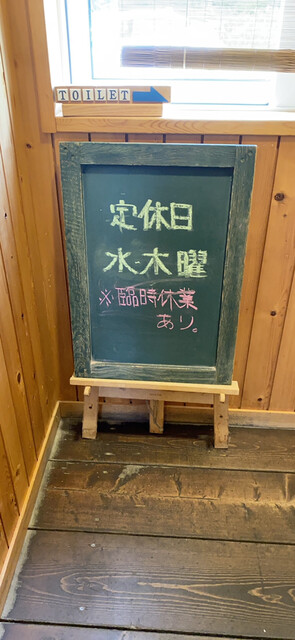 TOILET
定休日
水・木曜
※臨時休業
あり。